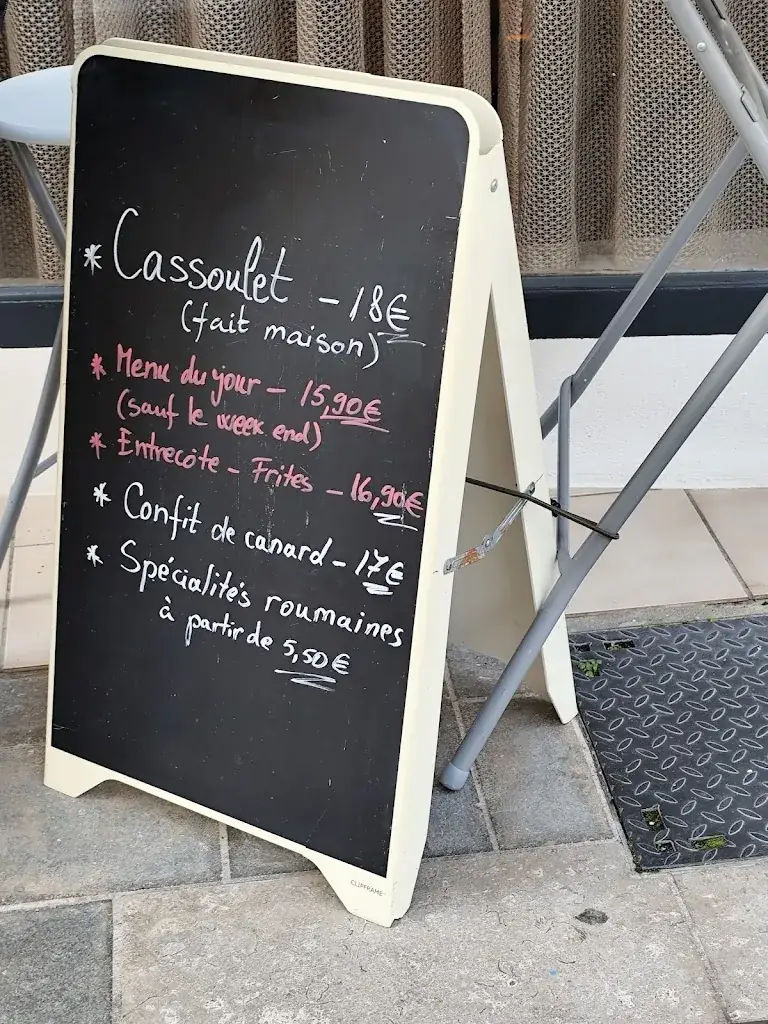 * Cassoulet - 18€
(fait maison)
* Menu du jour - 15,90€
(sauf le week end)
* Entrecôte - Frites - 16,90€
* Confit de canard - 17€
* Spécialités roumaines
à partir de 5,50€
CLIPFRAME